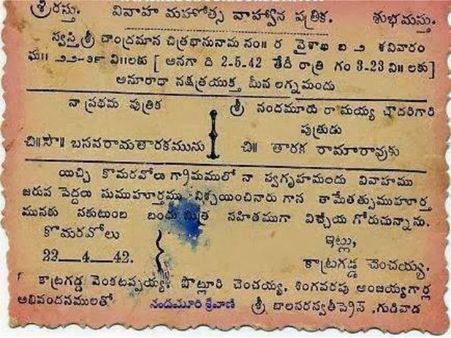 శ్రీరస్తు. వివాహ మహోత్స వాహ్వాన పత్రిక. శుభమస్తు.
స్వస్తిశ్రీ చాంద్రమాన చిత్రభానునామ సం॥ ర వైశాఖ బ ౨ శనివారం
ఘ॥ ౨౨-౩౯ వి॥లకు [ అనగా ది 2-5.42 తేదీ రాత్రి గం 3-23 ని॥ లకు ]
అనూరాధా నక్షత్రయుక్త మీన లగ్నమందు
నా ప్రథమ పుత్రిక శ్రీ నందమూరి రామయ్య చౌదరిగారి
పుత్రుడు
చి॥సౌ॥ బసవరామతారకమును చి॥ తారక రామారావుకు
యిచ్చి కొమరవోలు గ్రామములో నా స్వగృహమందు వివాహము
జరుప పెద్దలు సుముహూర్తము నిశ్చయించినారు గాన తామేతత్సుముహూర్త
మునకు సకుటుంబ బంధు మిత్ర సహితముగా విచ్చేయ గోరుచున్నాను.
కొమరవోలు ఇట్లు,
22__4__42. కాట్రగడ్డ చెంచయ్య.
కాట్రగడ్డ వెంకటప్పయ్య, పొట్లూరి చెంచయ్య, సింగవరపు అంజయ్యగార్ల
అభివందనములతో నందమూరి శ్రీవాణి శ్రీ బాలసరస్వతీప్రెస్, గుడివాడ